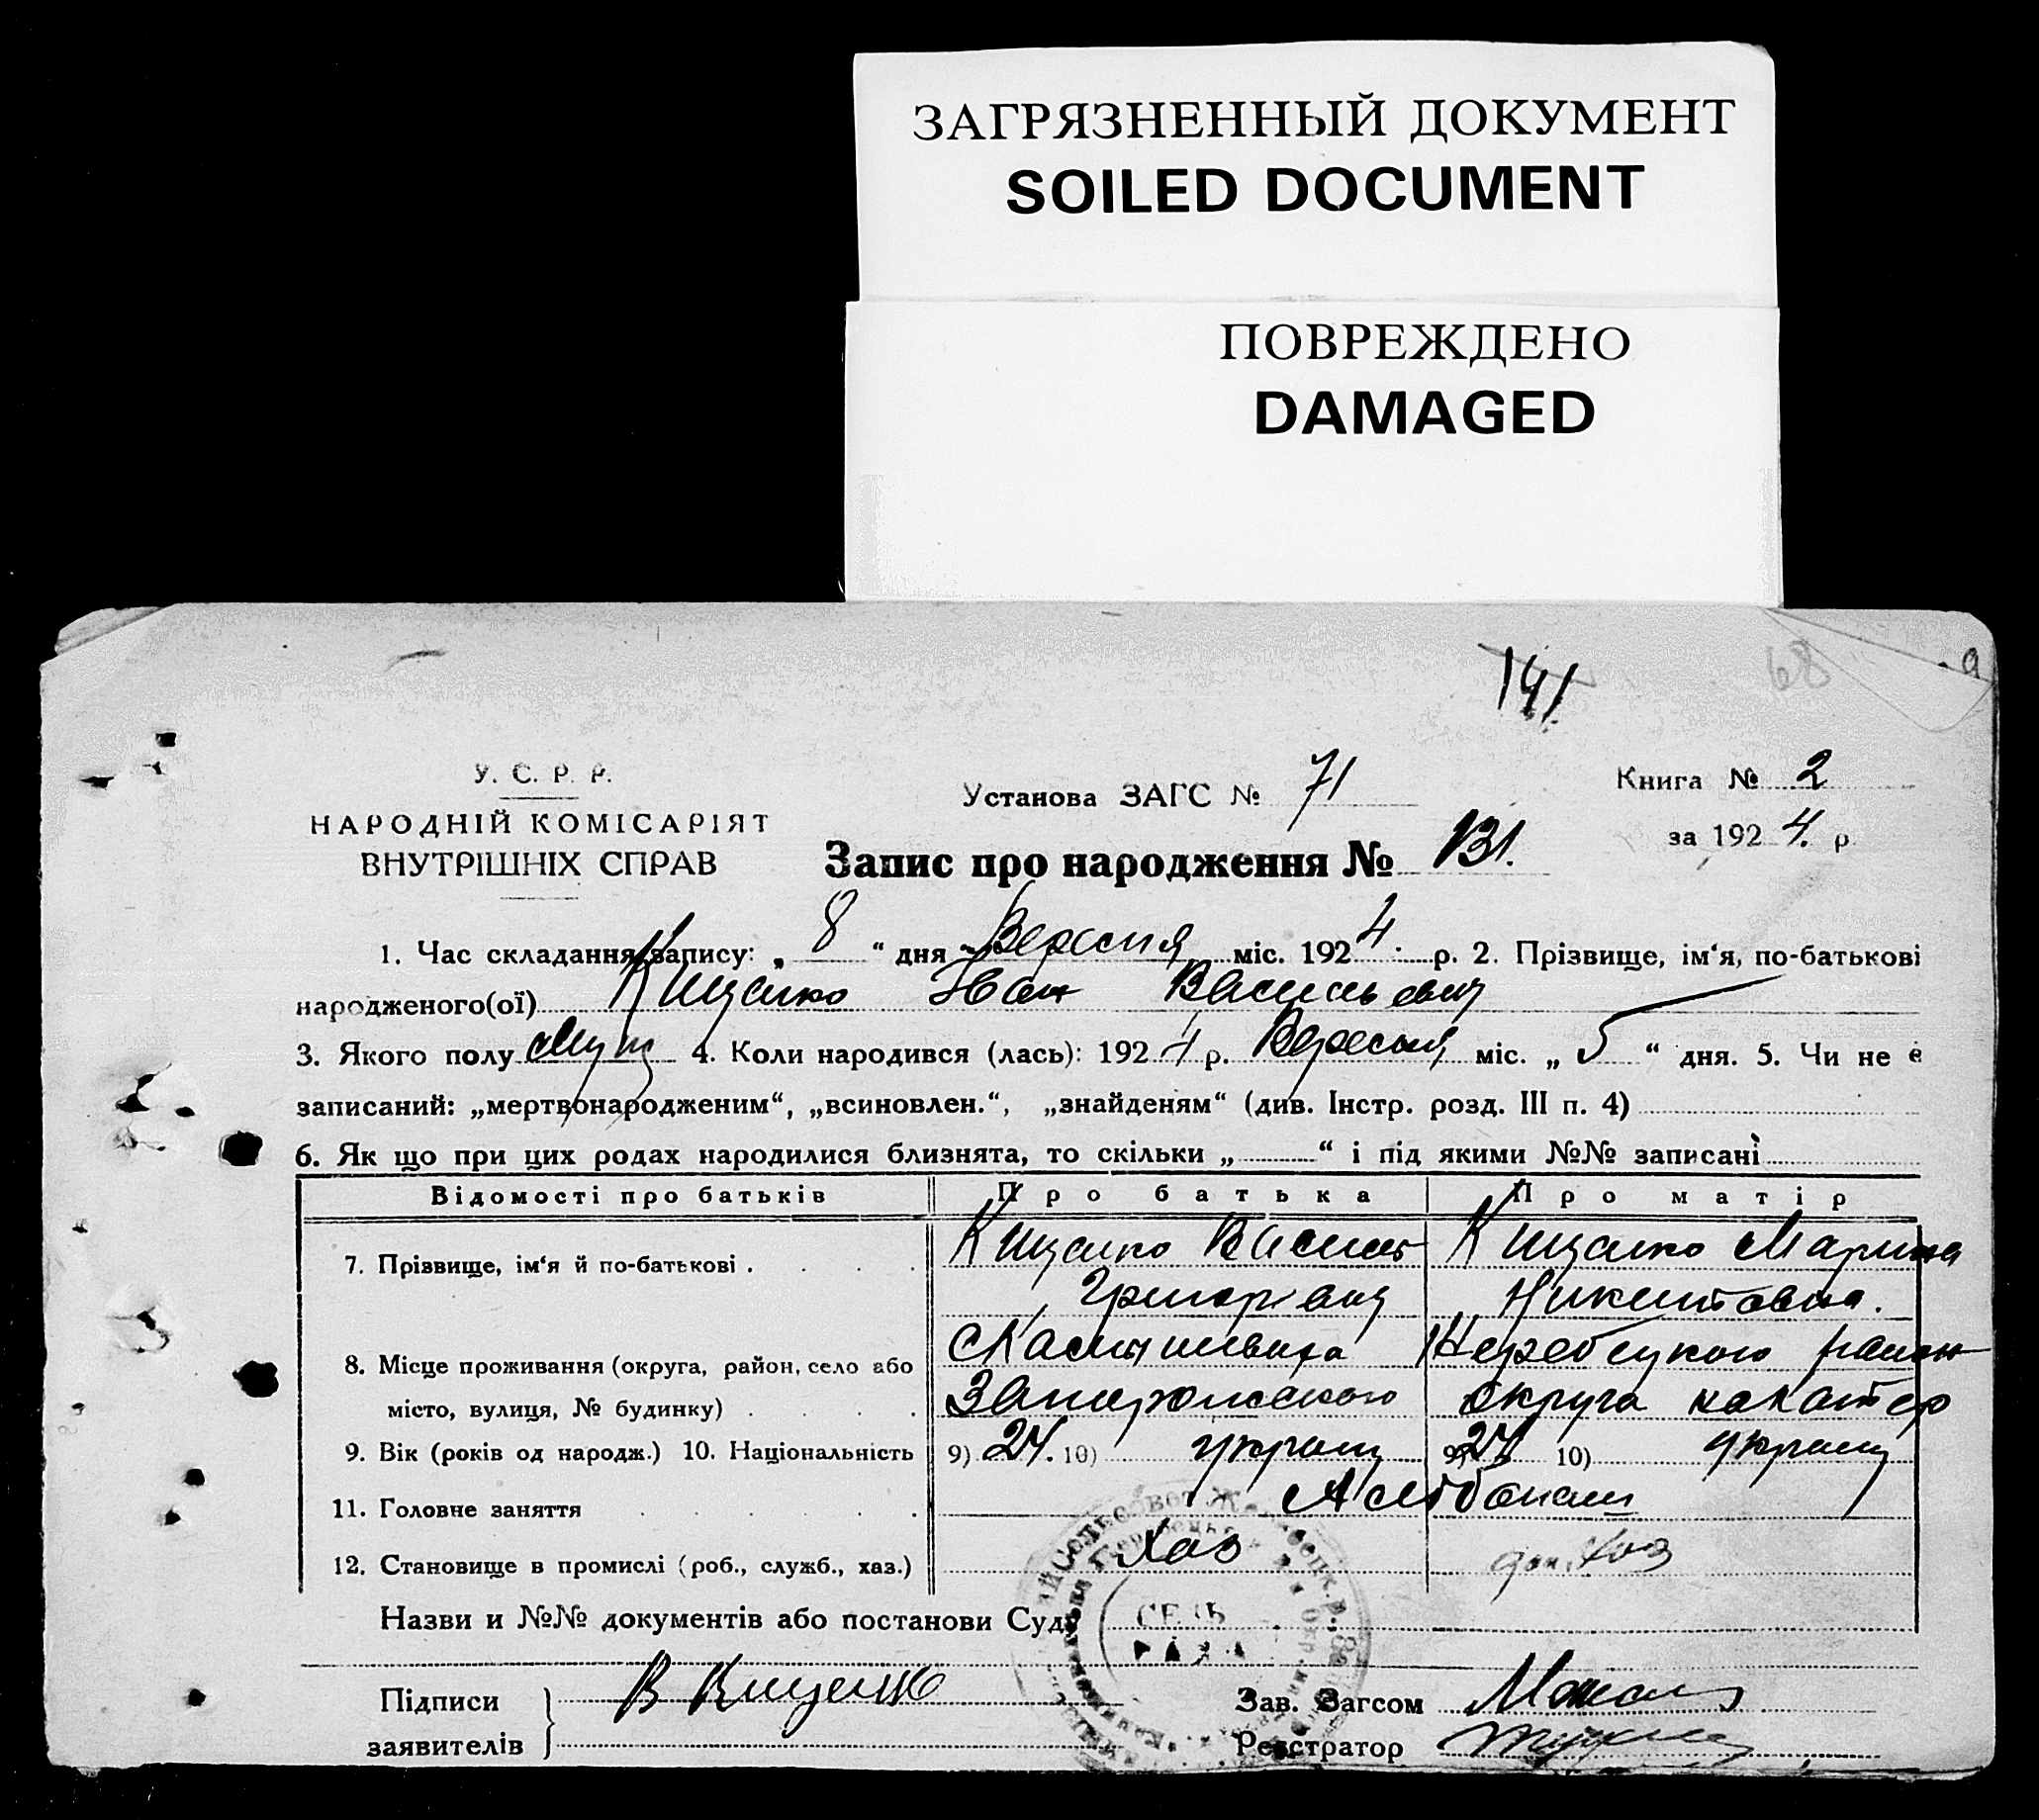 ЗАГРЯЗНЕННЫЙ ДОКУМЕНТ
SOILED DOCUMENT
ПОВРЕЖДЕНО
DAMAGED
141
68
У. С. Р. Р.
НАРОДНІЙ КОМІСАРІЯТ
ВНУТРІШНІХ СПРАВ
Установа ЗАГС № 71
Книга № 2
за 1924. р
Запис про народження № 131.
1. Час складання запису: „ 8 “ дня Вересня міс. 1924 р. 2. Прізвище, ім‘я, по-батькові
народженого(ої) Кищенко Иван Васильевич
3. Якого полу муж 4. Коли народився (лась): 1924 р. Вересня міс. „ 5 “ дня. 5. Чи не є
записаний: „мертвонародженим“, „всиновлен.“, „знайденям“ (див. Інстр. розд. III п. 4)
6. Як що при цих родах народилися близнята, то скільки „ “ і під якими №№ записані
Відомості про батьків Про батька Про матір
7. Прізвище, ім‘я й по-батькові Кищенко Василь Кищенко Марина
Григоревич Никитовна.
8. Місце проживання (округа, район, село або
місто, вулиця, № будинку) Запорожского округа
9. Вік (років од народж.) 10. Національність 9) 24. 10) украин 9) 24 10) украин
11. Головне заняття
12. Становище в промислі (роб., служб., хаз.) Хаз дом. хоз
Назви и №№ документів або постанови Суду
Підписи
заявителів
В Кищенко
Зав. Загсом
Реєстратор